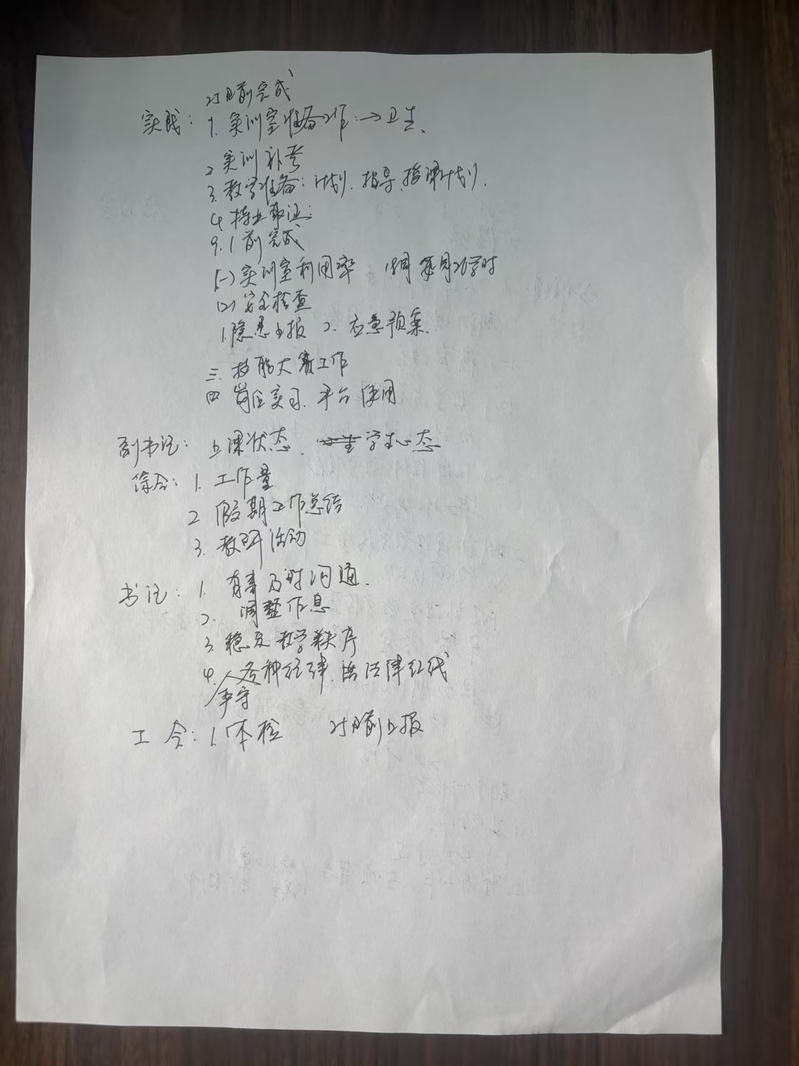 25日前完成
实践: 1. 实训室准备工作 → 卫生、
2 实训补考
3. 教学准备: 计划、指导、授课计划.
4. 持业取证:
9.1前完成
(一) 实训室利用率 18周 每周26学时
(二) 安全检查
1.隐患上报 2. 应急预案.
三. 技能大赛工作
四 岗位实习. 平台使用
副书记: 上课状态. 学生心态
综合: 1. 工作量
2 假期工作总结
3. 教研活动
书记: 1. 有事及时沟通.
2. 调整作息
3. 稳定教学秩序
4. 各种纪律. 法律红线
工会: 1. 体检 25日前上报